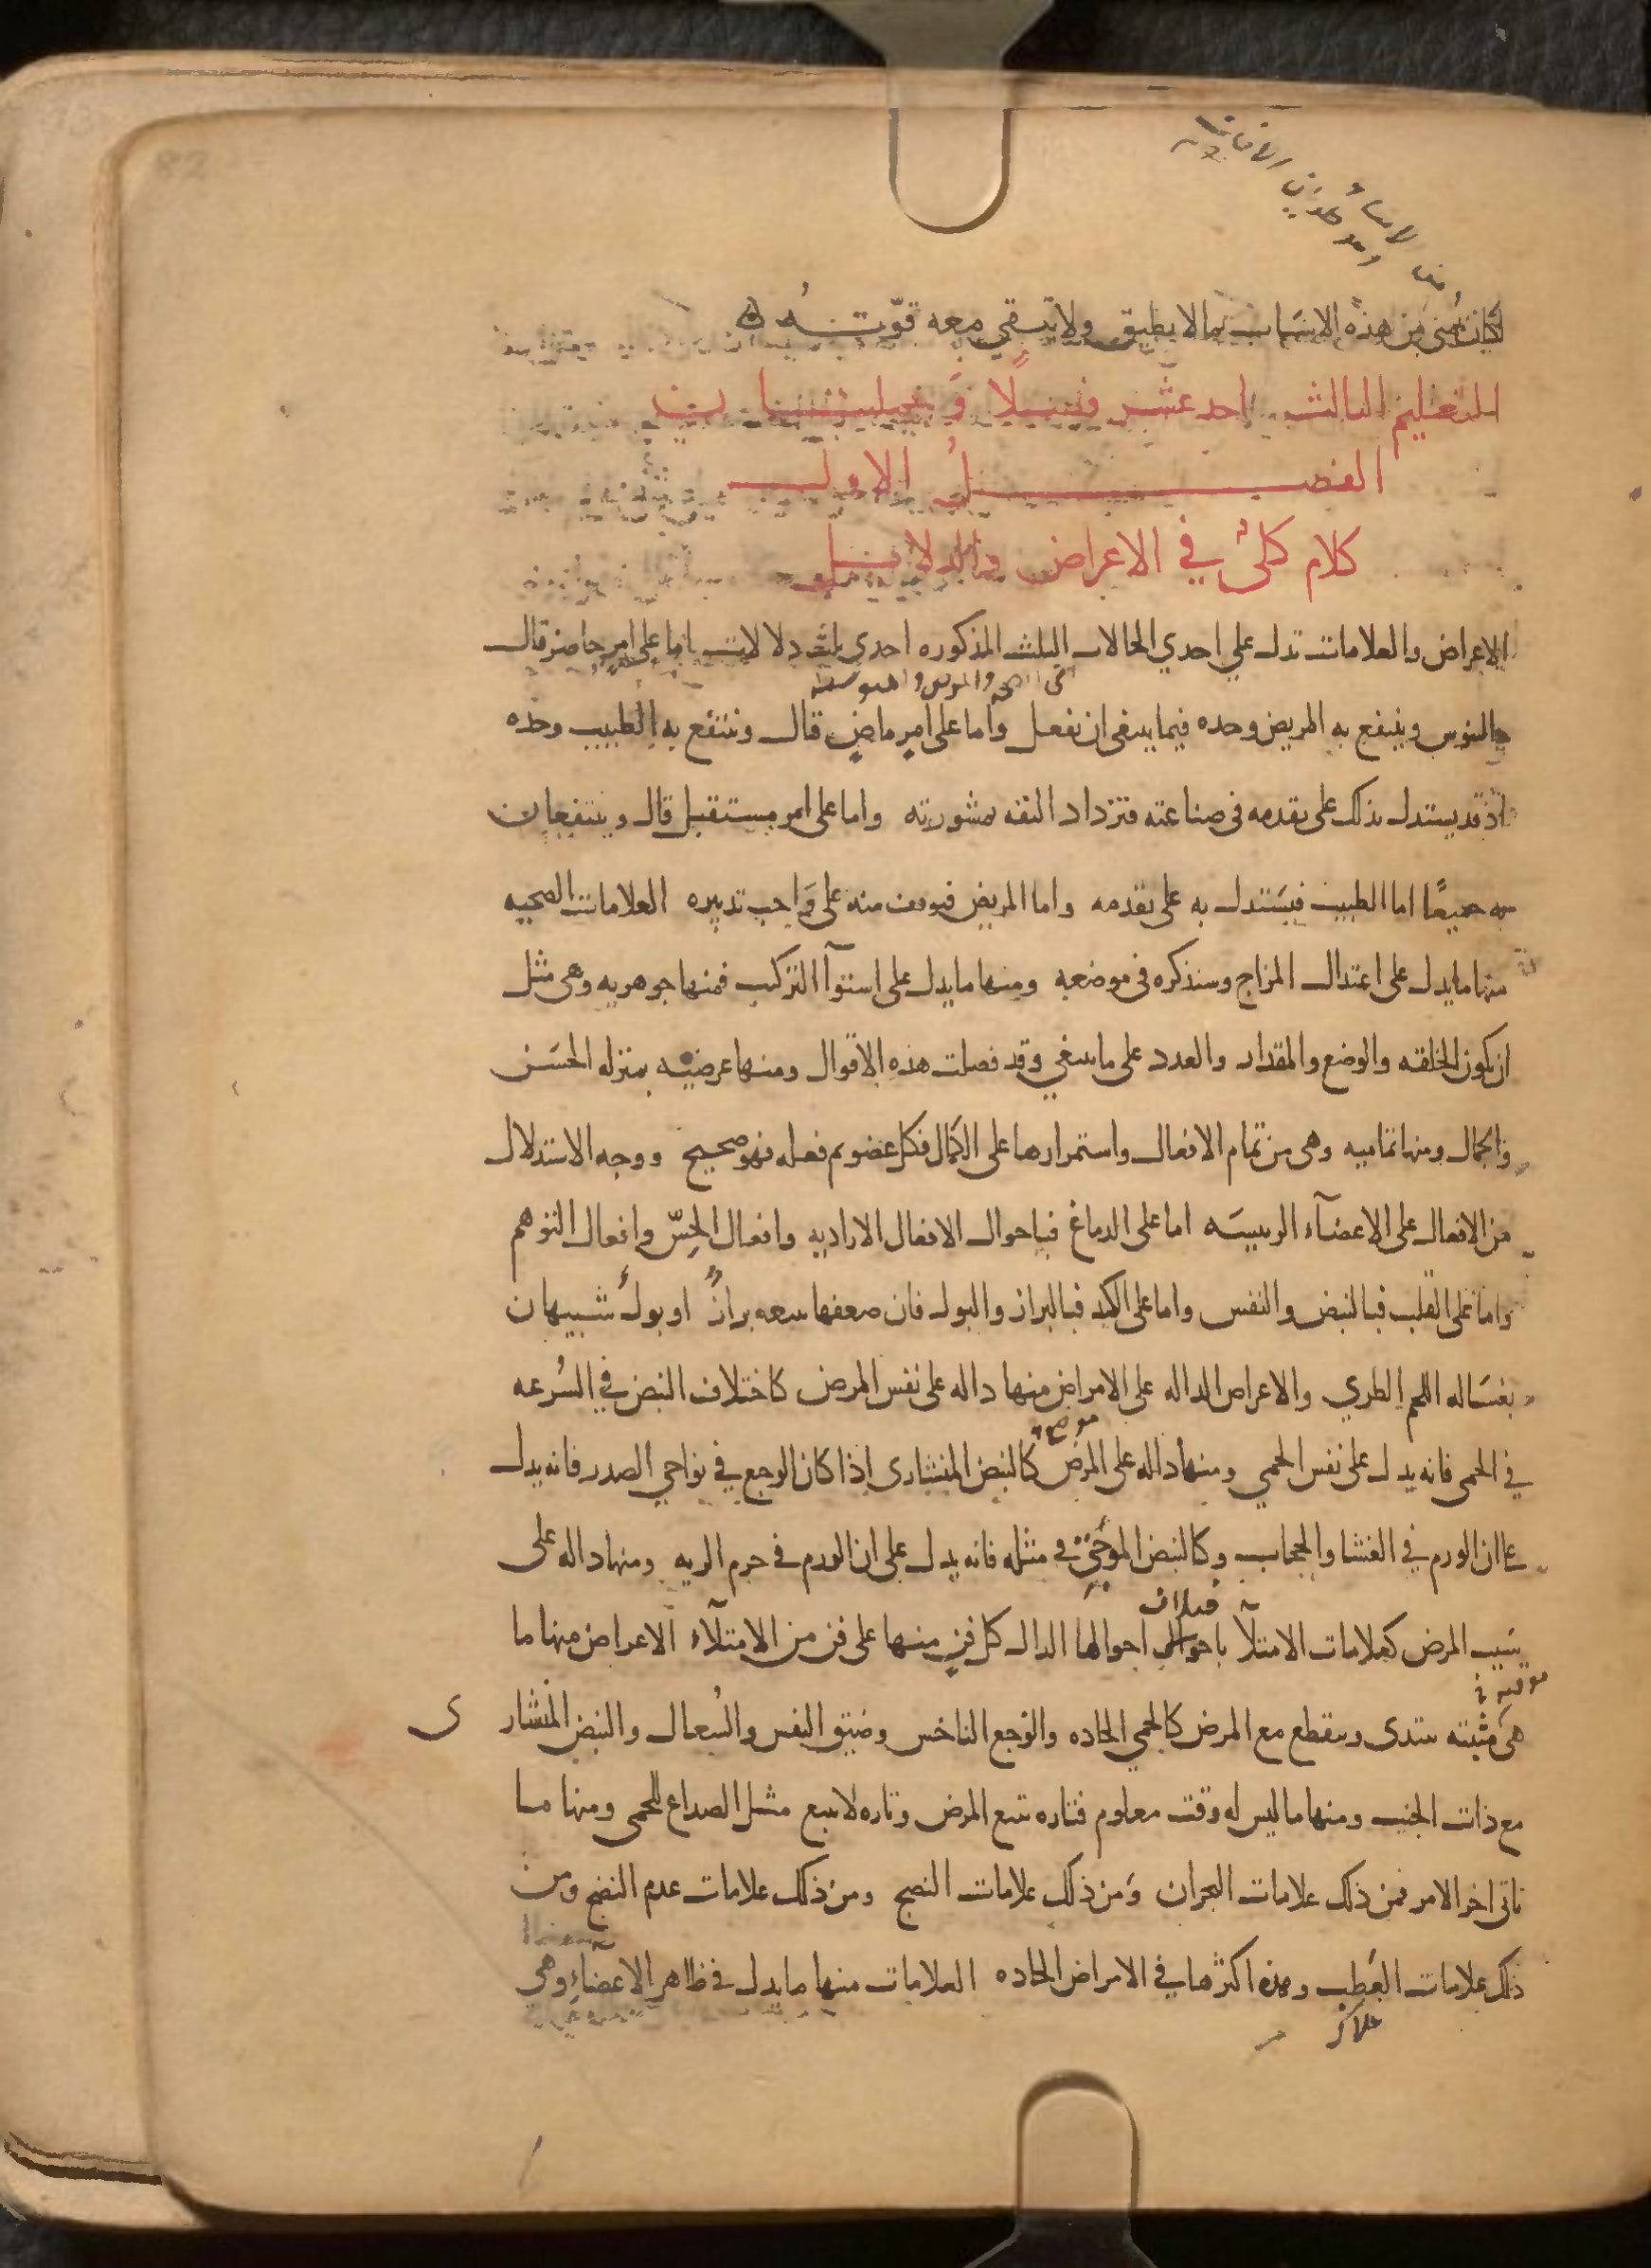 هذه الاسباب بما لا يطيق ولا تبقي معه قوّته
التعليم الثالث احد عشر فصلًا وجملتان
الفصل الاول
كلام كليٌ في الاعراض والدلايل
الاعراض والعلامات تدل علي احدي الحالات الثلث المذكوره احدي ثلث دلالات اما على امر حاضر قال
جالينوس وينتفع به المريض وحده فيما ينبغي ان يفعل واما على امرٍ ماضٍ قال وينتفع به الطبيب وحده
اذ قد يستدل بذلك على تقدمه في صناعته فتزداد الثقه بمشورته واما على امر مستقبل قال وينتفعان
به جميعًا اما الطبيب فيستدل به على تقدمه واما المريض فيوقف منه على واجب تدبيره العلامات الصحيه
منها ما يدل على اعتدال المزاج وسنذكره في موضعه ومنها ما يدل على استوآ التركيب فمنها جوهريه وهي مثل
ان تكون الخلقه والوضع والمقدار والعدد على ما ينبغي وقد فصلت هذه الاقوال ومنها عرضيه بمنزله الحسن
والجمال ومنها تماميه وهي من تمام الافعال واستمرارها على الكمال فكل عضو تم فعله فهو صحيح ووجه الاستدلال
من الافعال على الاعضآء الرييسه اما على الدماغ فباحوال الافعال الاراديه وافعال الحسّ وافعال التوهم
واما على القلب فبالنبض والنفس واما على الكبد فبالبراز والبول فان ضعفها يتبعه برازٌ او بولٌ شبيهان
بغساله اللحم الطري والاعراض الداله على الامراض منها داله على نفس المرض كاختلاف النبض في السرعه
موضع
في الحمى فانه يدل على نفس الحمى ومنها داله على المرض كالنبض المنشارى اذا كان الوجع في نواحي الصدر فانه يدل
على ان الورم في الغشا والحجاب وكالنبض الموجيّ في مثله فانه يدل على ان الورم في جرم الريه ومنها داله على
سبب المرض كعلامات الامتلآ باحوال احوالها الدال كل فنٍ منها على فن من الامتلآء الاعراض منها ما
هي موقته تبتدى وينقطع مع المرض كالحمي الحاده والوجع الناخس وضيق النفس والسعال والنبض المنشارى
مع ذات الجنب ومنها ما ليس له وقت معلوم فتاره تتبع المرض وتاره لا تتبع مثل الصداع للحمى ومنها ما
تاتى اخر الامر فمن ذلك علامات البحران ومن ذلك علامات النضج ومن ذلك علامات عدم النضج ومن
ذلك علامات العطب وهذه اكثرها في الامراض الحاده العلامات منها ما يدل في ظاهر الاعضآء وهي